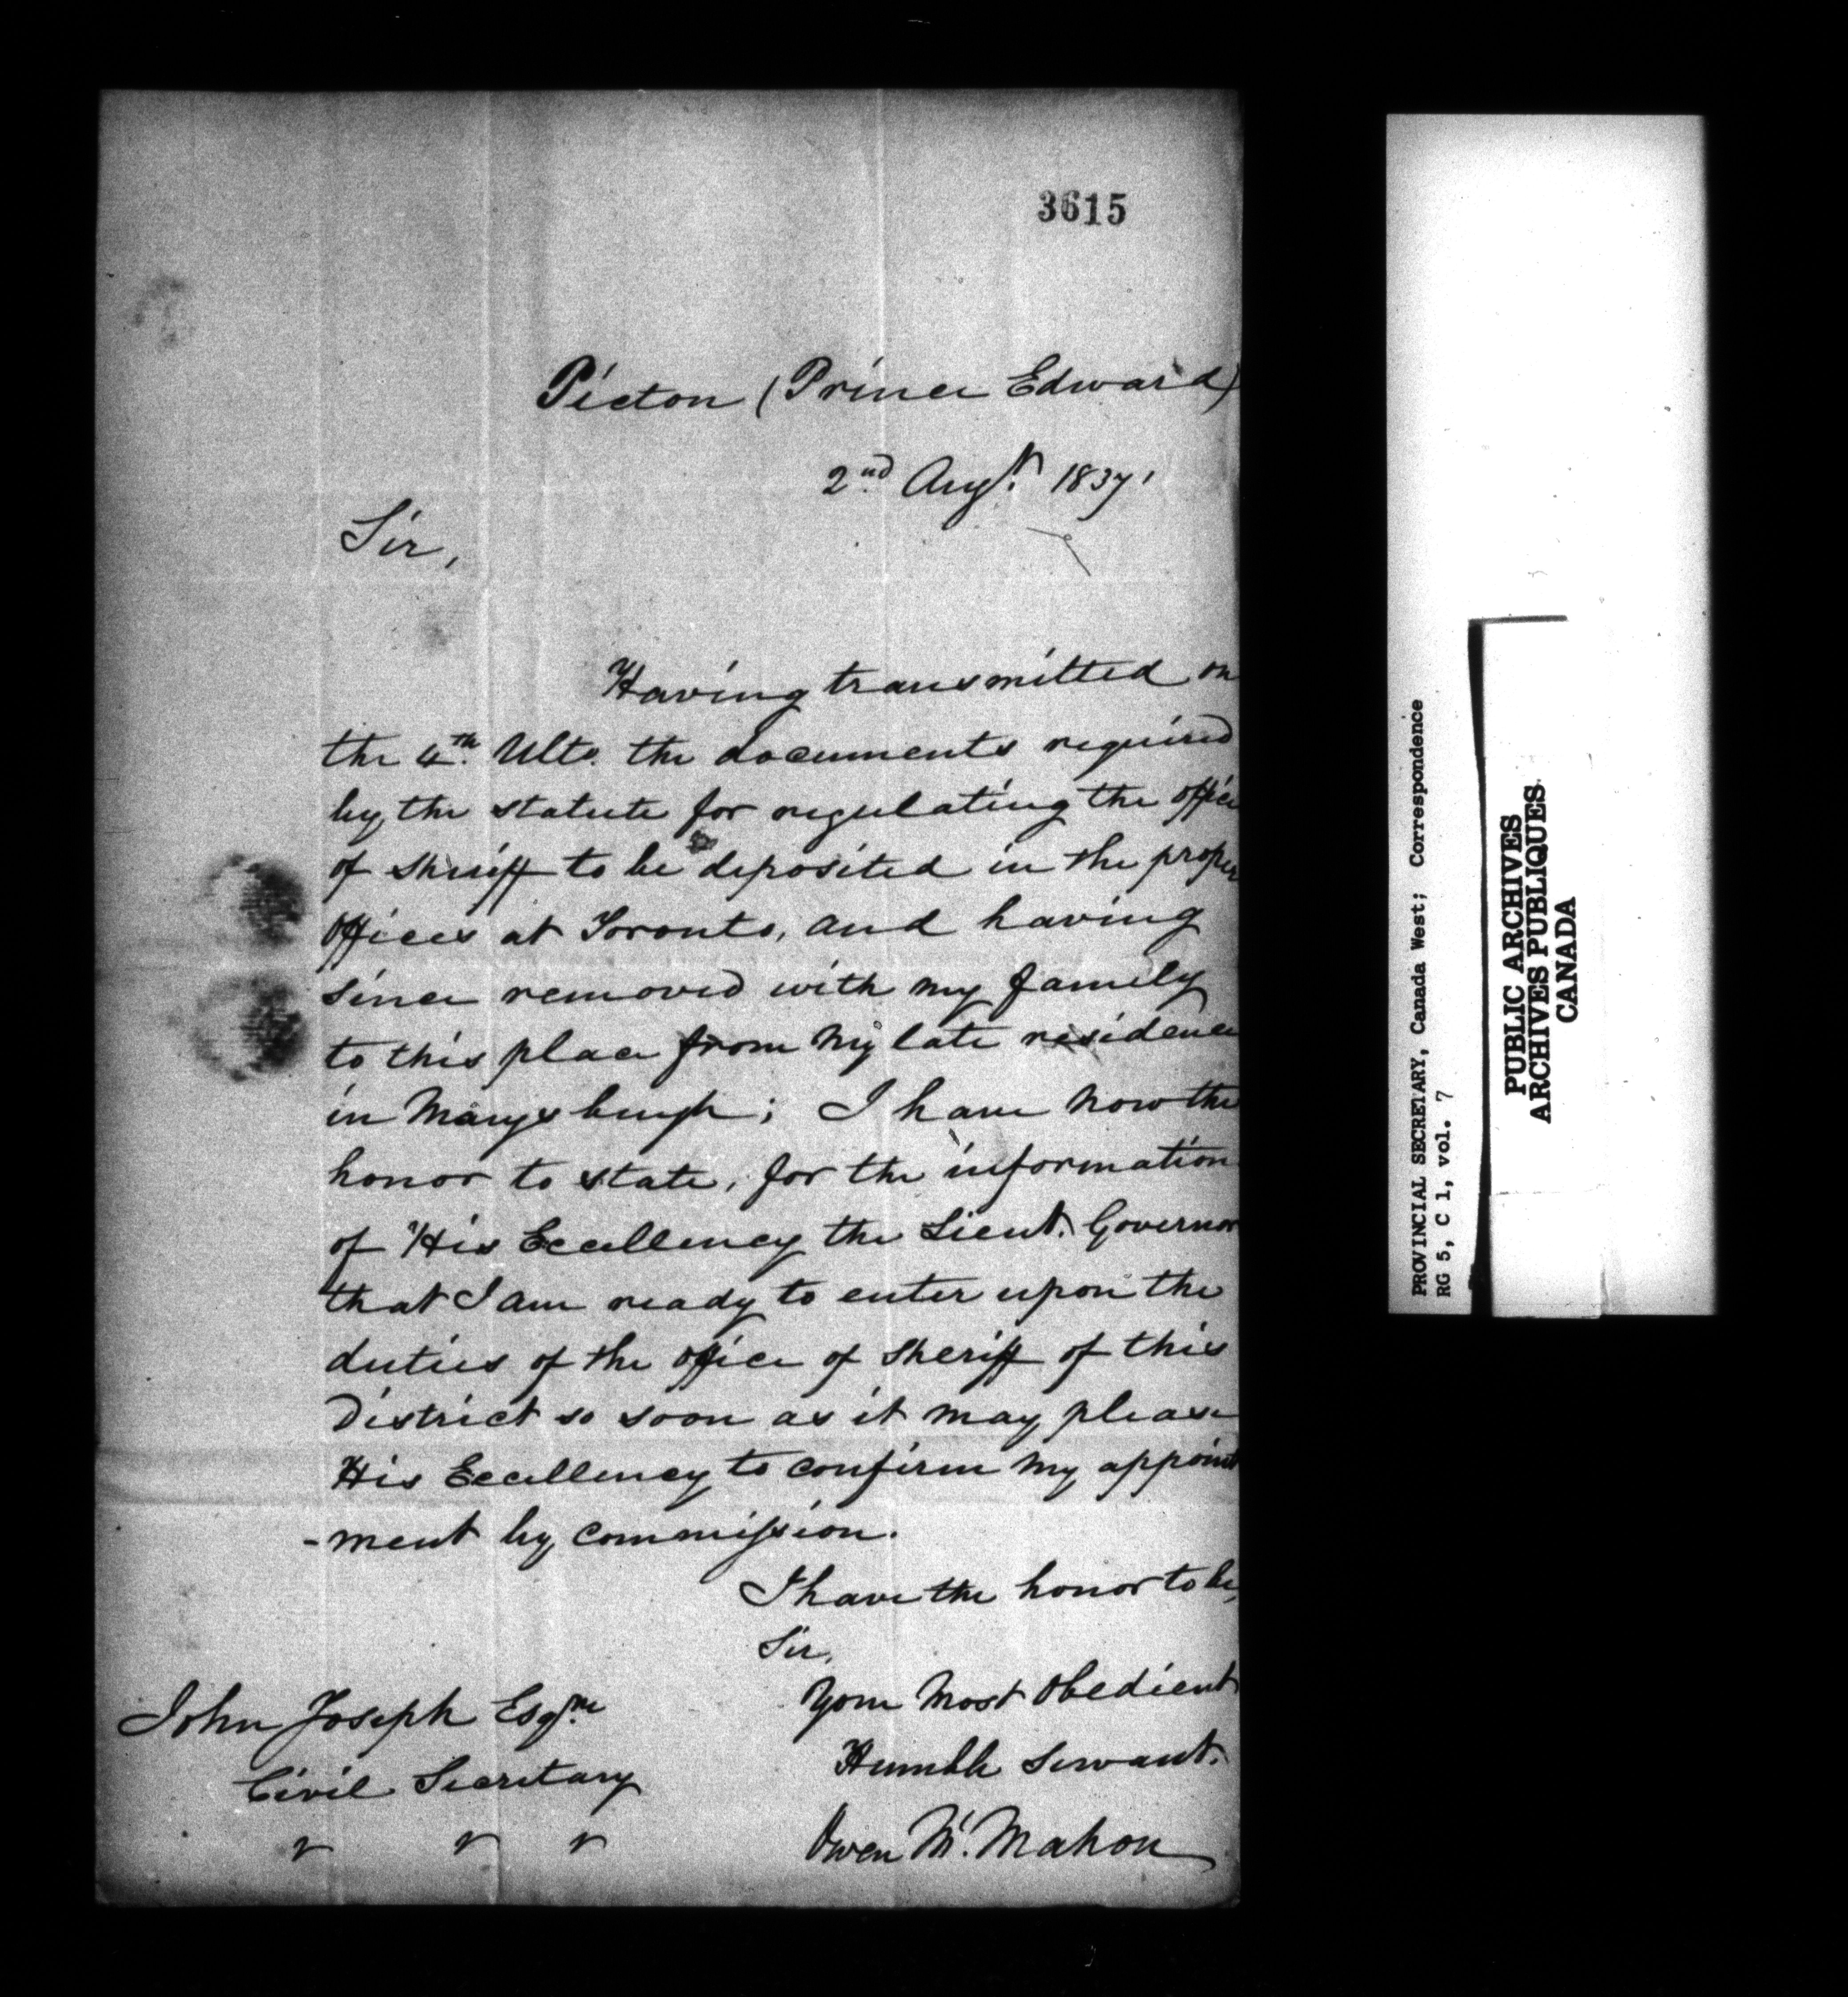 3615
Picton (Prince Edward)
2nd Augt. 1837
Sir,
Having transmitted on
the 4th. Ulto. the documents required
by the statute for regulating the office
of Sheriff to be deposited in the proper
Offices at Toronto, and having
since removed with my family
to this place from my late residence
in Marysburgh; I have now the
honor to state, for the information
of His Excellency the Lieut. Governor
that I am ready to enter upon the
duties of the office of Sheriff of this
District so soon as it may please
His Excellency to confirm my appoint
-ment by commission.
I have the honor to be,
Sir,
Your Most Obedient
Humble Servant.
Owen McMahon
John Joseph Esqre.
Civil Secretary
PROVINCIAL SECRETARY, Canada West; Correspondence
RG 5, C 1, vol. 7
PUBLIC ARCHIVES
ARCHIVES PUBLIQUES
CANADA